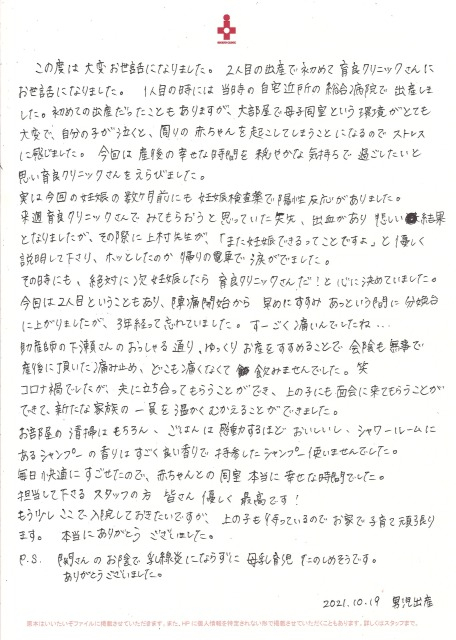 この度は大変お世話になりました。 2人目の出産で初めて育良クリニックさんに
お世話になりました。 1人目の時には当時の自宅近所の総合病院で出産しま
した。初めての出産だったこともありますが、大部屋で母子同室という環境がとても
大変で、自分の子が泣くと、周りの赤ちゃんを起こしてしまうことになるので ストレス
に感じました。 今回は産後の幸せな時間を穏やかな気持ちで過ごしたいと
思い育良クリニックさんをえらびました。
実は今回の妊娠の数ヶ月前にも妊娠検査薬で陽性反応がありました。
来週育良クリニックさんでみてもらおうと思っていた矢先、出血があり 悲しい結果
となりましたが、その際に上村先生が、「また妊娠できるってことですよ」と優しく
説明して下さり、ホッとしたのか 帰りの電車で涙がでました。
その時にも、絶対に次妊娠したら 育良クリニックさんだ!と心に決めていました。
今回は2人目ということもあり、陣痛開始から 早めにすすみ あっという間に分娩台
に上がりましたが、3年経って忘れていました。すーごく痛いんでしたね...
助産師の下瀬さんのおっしゃる通り、ゆっくりお産をすすめることで会陰も無事で
産後に頂いた痛み止め、どこも痛くなくて 飲みませんでした。笑
コロナ禍でしたが、夫に立ち会ってもらうことができ、上の子にも面会に来てもらうことが
できて、新たな家族の一員を温かくむかえることができました。
お部屋の清掃はもちろん、ごはんは感動するほどおいしいし、シャワールームに
あるシャンプーの香りはすごく良い香りで持参したシャンプー使いませんでした。
毎日快適にすごせたので、赤ちゃんとの同室 本当に幸せな時間でした。
担当して下さるスタッフの方 皆さん優しく最高です!
もう少しここで入院しておきたいですが、上の子も待っているのでお家で子育て頑張り
ます。 本当にありがとうございました。
P.S. 関さんのお陰で乳腺炎にならずに母乳育児 たのしめそうです。
ありがとうございました。
2021.10.19 男児出産
原本はいいたいぞファイルに掲載させていただきます。また、HPに個人情報を特定されない形で掲載させていただくこともあります。詳しくはスタッフまで。